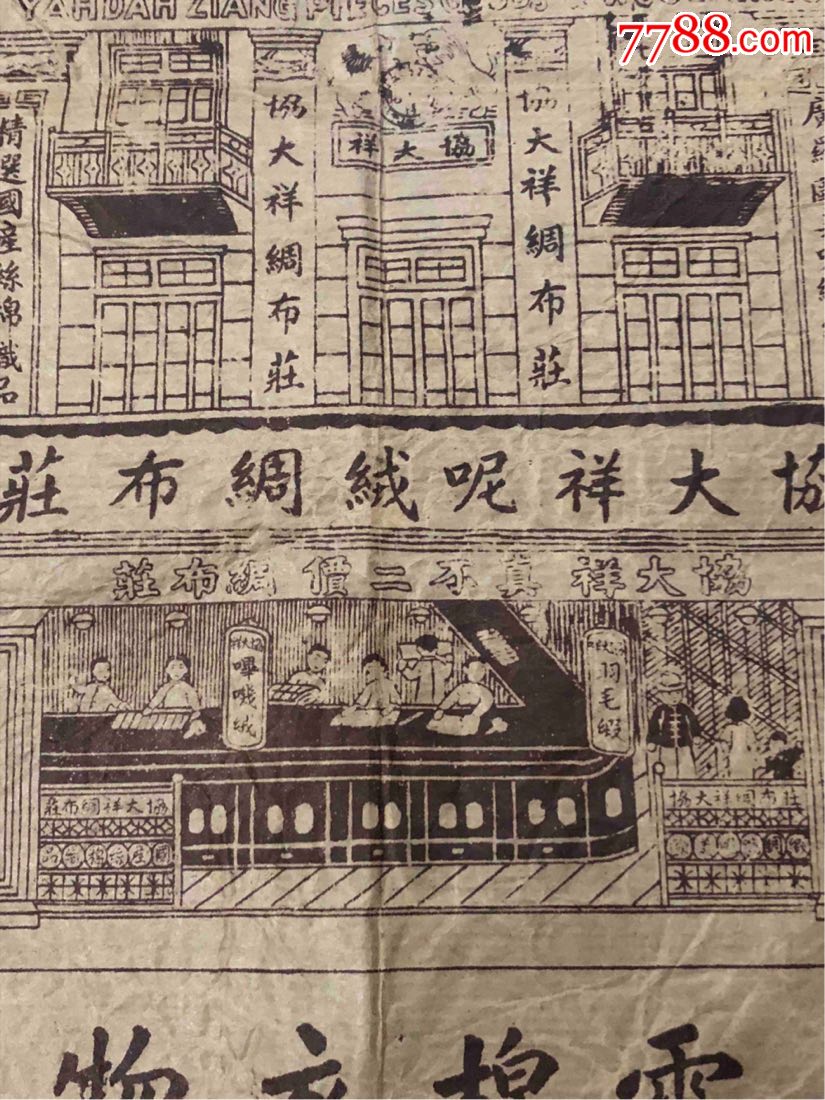 YAH DAH ZIANG PIECE GOODS
7788.com
協大祥
協大祥綢布莊
協大祥綢布莊
精選國産絲綿織品
協大祥呢絨綢布莊
協大祥真不二價綢布莊
協大祥
嗶嘰絨
羽毛緞
協大祥綢布莊
協大祥綢布莊